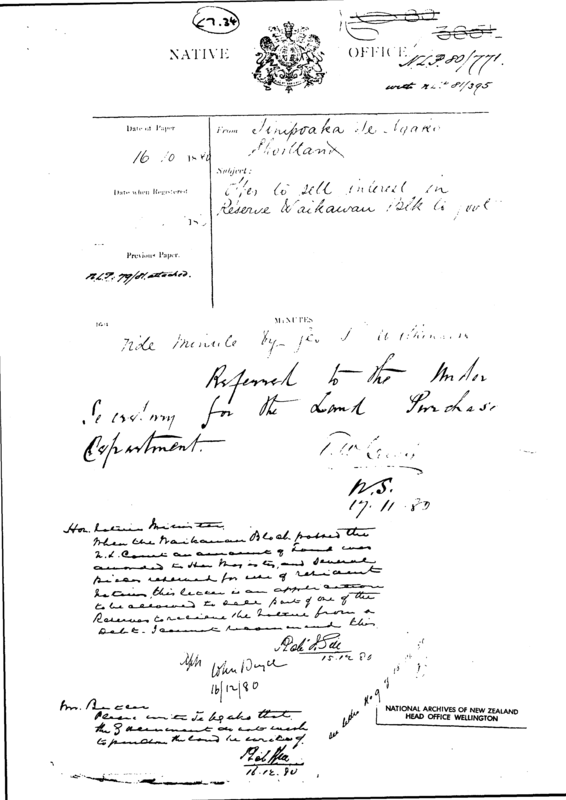 C7.34
NATIVE OFFICE
N.L.P 80/771.
with N.L.P 81/395
Date of Paper
16 10 1880
From Te Ngakio
Shortland
Subject:
Offer to sell interest in
Reserve Waikawau Blk to govt
Date when Registered
Previous Paper.
N.L.P. 79/81 attached.
MINUTES
Vide minute by Geo T Wilkinson
Referred to the Under
Secretary for the Land Purchase
Department.
T W Lewis
U.S.
17.11.80
Hon. Native Minister
When the Waikawau Block passed the
N.L. Court an amount of Land was
awarded to Her Majesty, and several
pieces reserved for use of resident
Natives, this letter is an application
to be allowed to sell part of one of the
Reserves to relieve the Native from a
Debt. I cannot recommend this
15.12.80
John Bryce
16/12/80
Mr.
Please write Te that
the Government do not wish
to purchase the land he writes of.
16.12.80
NATIONAL ARCHIVES OF NEW ZEALAND
HEAD OFFICE WELLINGTON